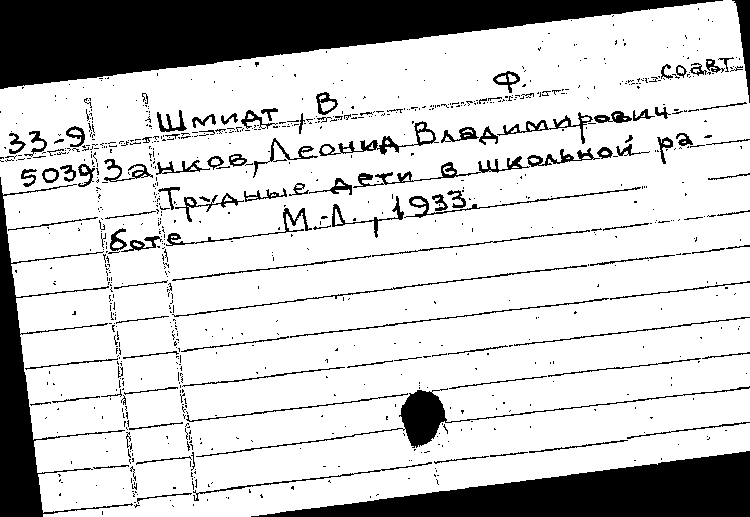 Шмидт, В. Ф. соавт
33-9
5039 Занков, Леонид Владимирович.
Трудные дети в школьной ра-
боте. М.-Л., 1933.